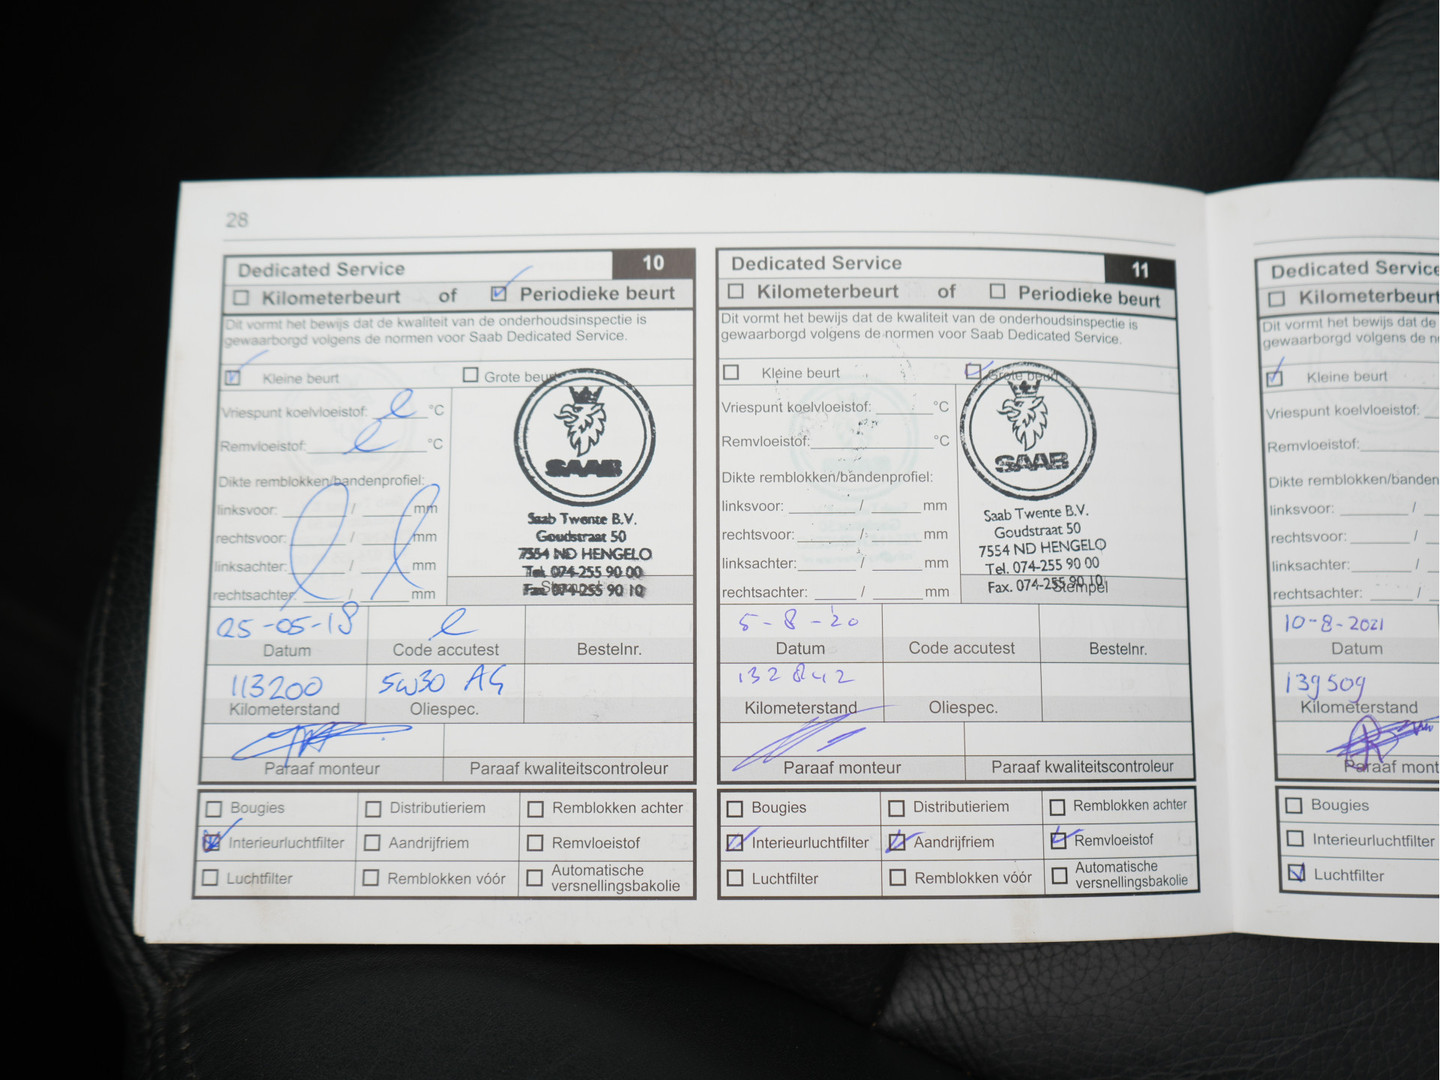 28
Dedicated Service 10
Kilometerbeurt of Periodieke beurt
Dit vormt het bewijs dat de kwaliteit van de onderhoudsinspectie is
gewaarborgd volgens de normen voor Saab Dedicated Service.
Kleine beurt Grote beurt
Vriespunt koelvloeistof: °C
Remvloeistof: °C
Dikte remblokken/bandenprofiel:
linksvoor: / mm
rechtsvoor: / mm
linksachter: / mm
rechtsachter: / mm
SAAB
Saab Twente B.V.
Goudstraat 50
7554 ND HENGELO
Tel. 074-255 90 00
Fax. 074-255 90 10
25-05-18
Datum Code accutest Bestelnr.
113200 5W30 AG
Kilometerstand Oliespec.
Paraaf monteur Paraaf kwaliteitscontroleur
Bougies Distributieriem Remblokken achter
Interieurluchtfilter Aandrijfriem Remvloeistof
Luchtfilter Remblokken vóór Automatische
versnellingsbakolie
Dedicated Service 11
Kilometerbeurt of Periodieke beurt
Dit vormt het bewijs dat de kwaliteit van de onderhoudsinspectie is
gewaarborgd volgens de normen voor Saab Dedicated Service.
Kleine beurt Grote beurt
Vriespunt koelvloeistof: °C
Remvloeistof: °C
Dikte remblokken/bandenprofiel:
linksvoor: / mm
rechtsvoor: / mm
linksachter: / mm
rechtsachter: / mm
SAAB
Saab Twente B.V.
Goudstraat 50
7554 ND HENGELO
Tel. 074-255 90 00
Fax. 074-255 90 10
Stempel
5-8-20
Datum Code accutest Bestelnr.
132842
Kilometerstand Oliespec.
Paraaf monteur Paraaf kwaliteitscontroleur
Bougies Distributieriem Remblokken achter
Interieurluchtfilter Aandrijfriem Remvloeistof
Luchtfilter Remblokken vóór Automatische
versnellingsbakolie
Dedicated Service
Kilometerbeurt
Dit vormt het bewijs dat de
gewaarborgd volgens de n
Kleine beurt
Vriespunt koelvloeistof:
Remvloeistof:
Dikte remblokken/banden
linksvoor: /
rechtsvoor: /
linksachter: /
rechtsachter: /
10-8-2021
Datum
139509
Kilometerstand
Paraaf mont
Bougies
Interieurluchtfilter
Luchtfilter